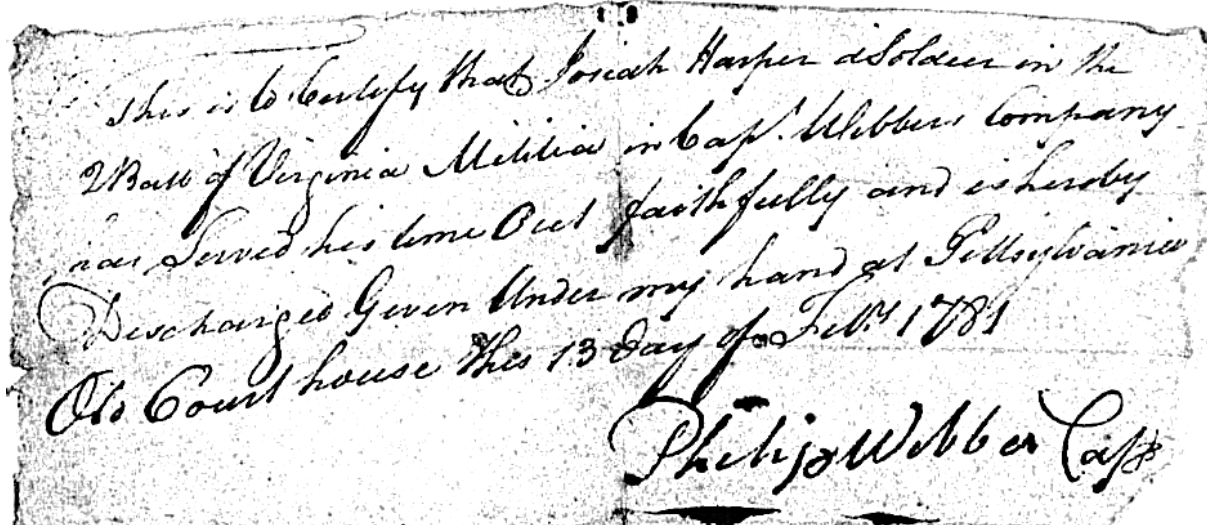 This is to Certify that Josiah Harper a Soldier in the
2 Batt of Virginia Militia in Capt. Webbers Company
has Served his time Out faithfully and is hereby
Discharged Given Under my hand at Pittsylvania
Old Court house this 13 day of Feby 1781
Philip Webber Capt